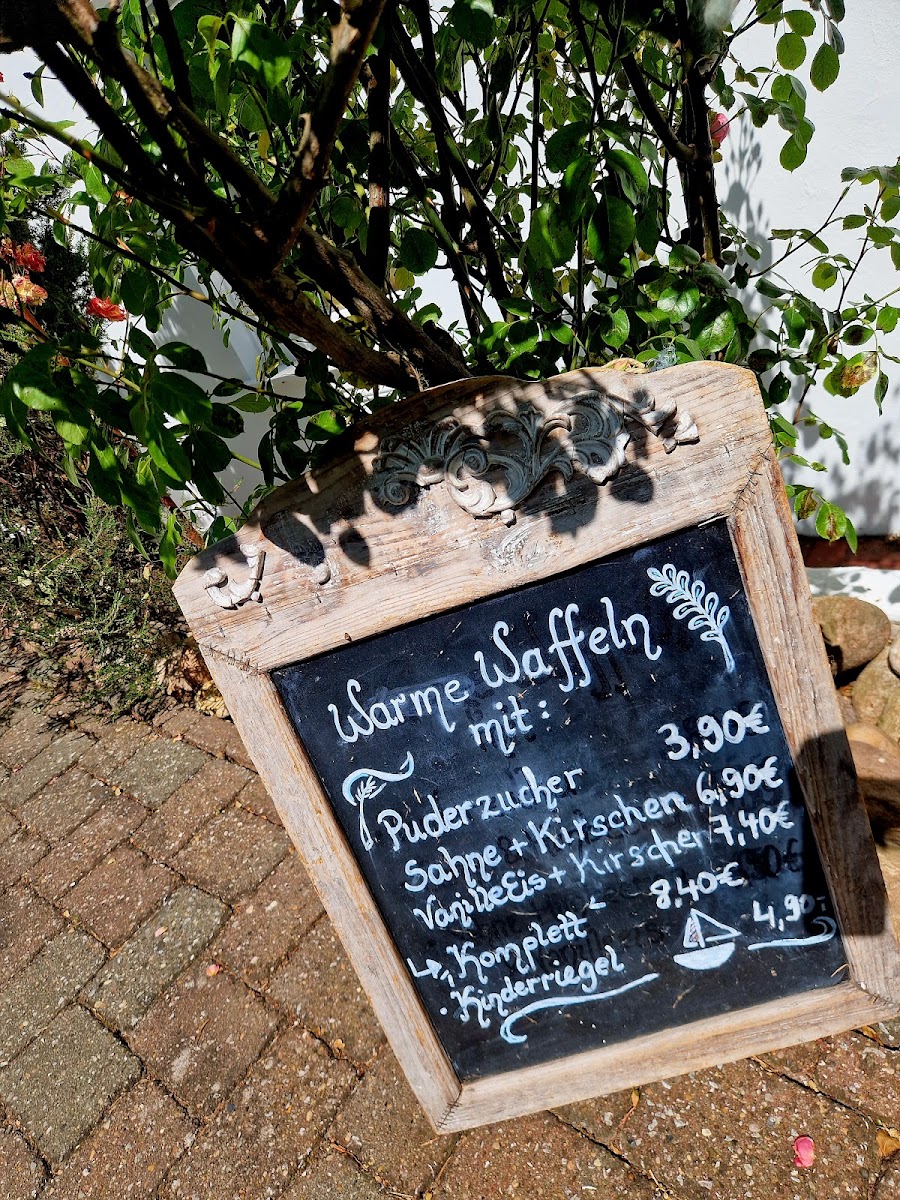 Warme Waffeln
mit:
Puderzucker 3,90€
Sahne + Kirschen 6,90€
VanilleEis + Kirschen 7,40€
↳ "Komplett" 8,40€
· Kinderriegel 4,90-